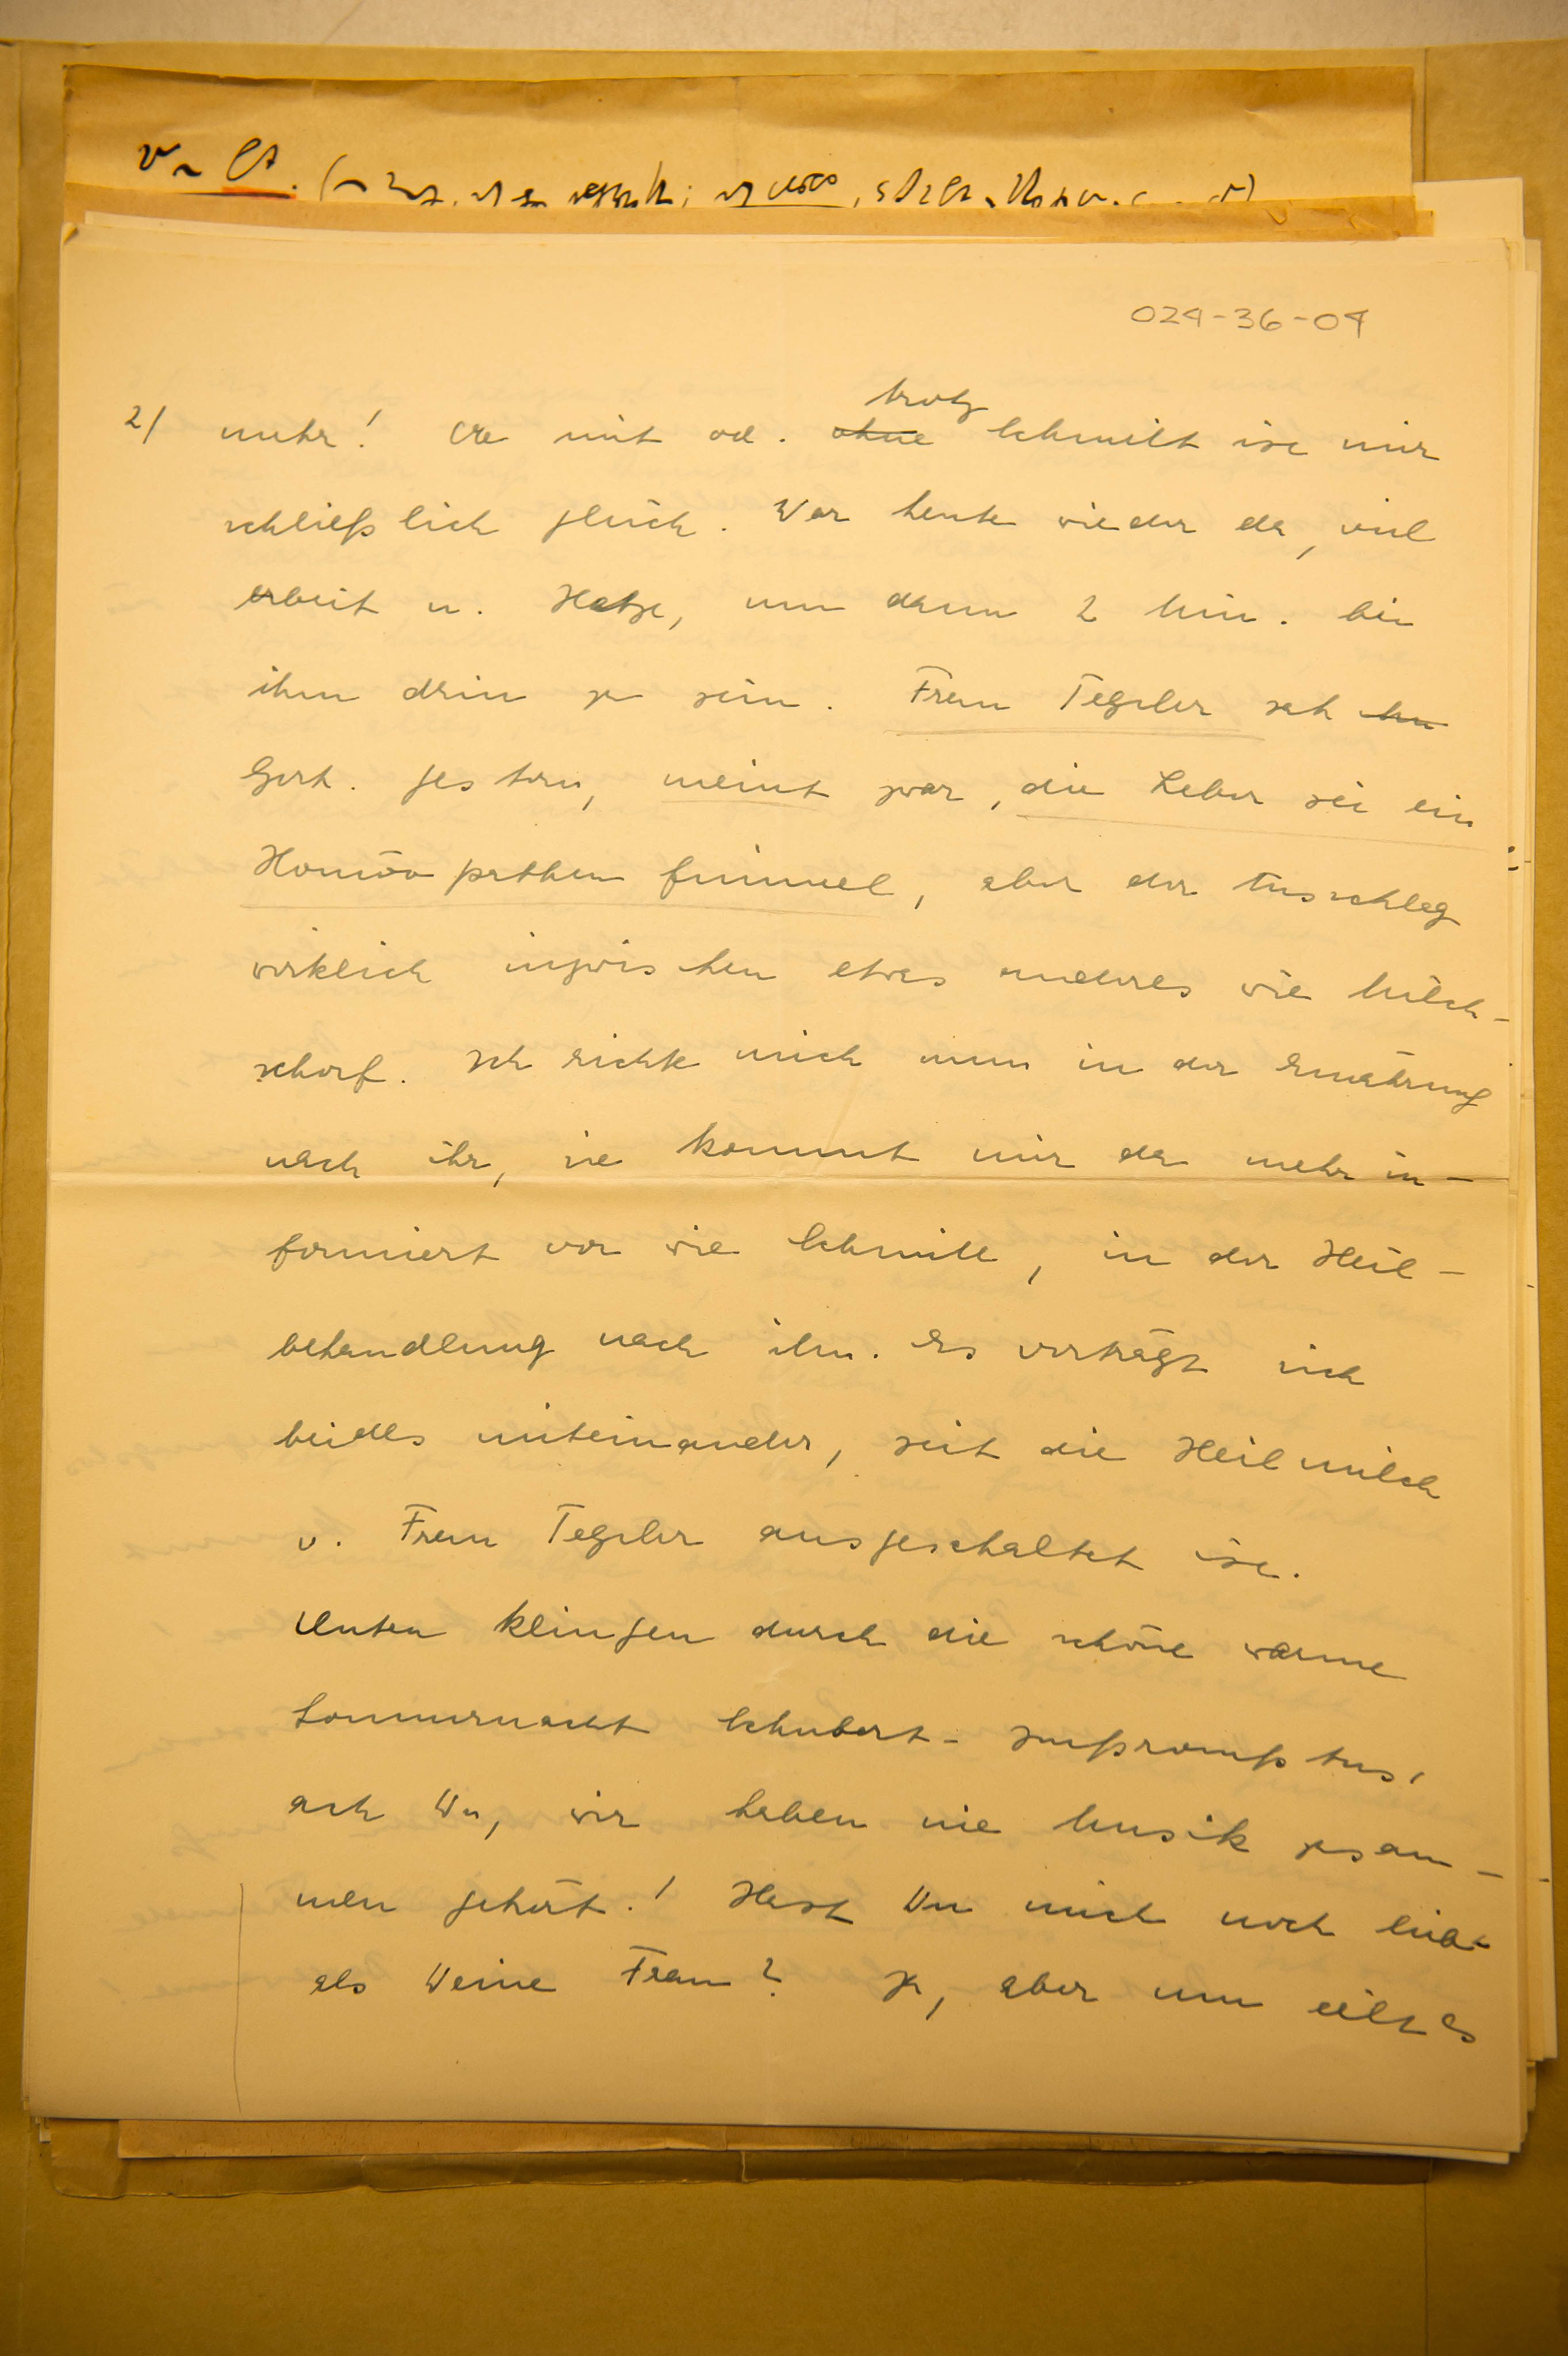 024-36-04
2/ mehr! Ob mit od. ~~ohne~~ trotz Schmitt ist mir
schließlich gleich. War heute wieder da, viel
Arbeit u. Hetze, um dann 2 Min. bei
ihm drin zu sein. Frau Tegeler sah ~~ihn~~
Gert. gestern, meint zwar, die Leber sei ein
Homöopathenfimmel, aber der Ausschlag
wirklich inzwischen etwas anderes wie Milch-
schorf. Ich richte mich nun in der Ernährung
nach ihr, sie kommt mir da mehr in-
formiert vor wie Schmitt, in der Heil-
behandlung nach ihm. Es verträgt sich
beides miteinander, seit die Heilmilch
v. Frau Tegeler ausgeschaltet ist.
Unten klingen durch die schöne warme
Sommernacht Schubert-Impromptus,
ach Du, wir haben nie Musik zusam-
men gehört! Hast Du mich noch lieb
als Deine Frau? Ja, aber nun eilt es